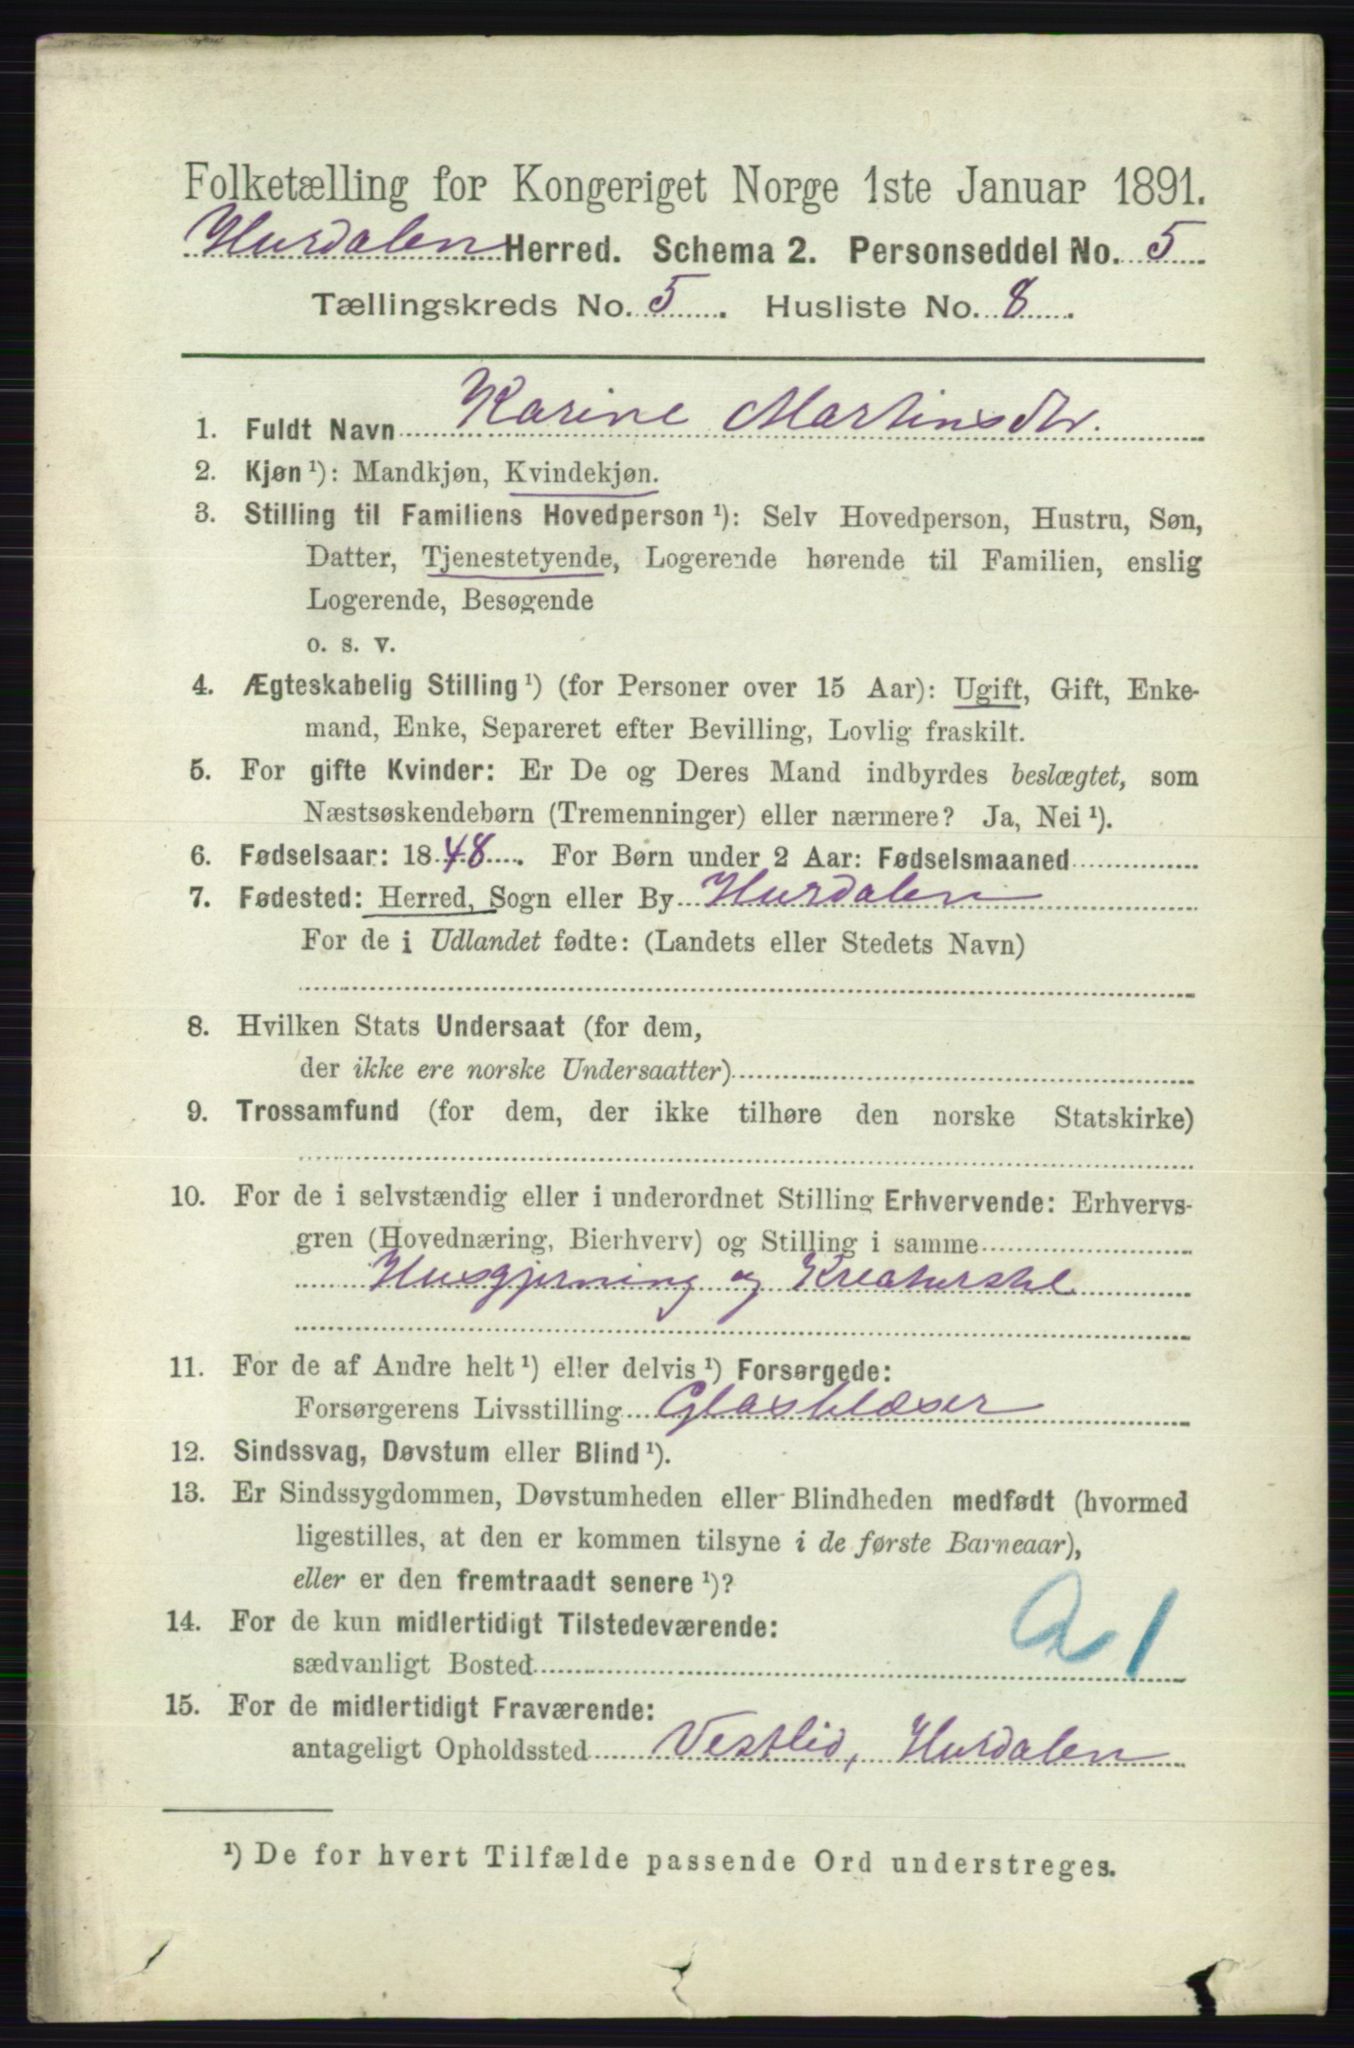 Folketælling for Kongeriget Norge 1ste Januar 1891.
Hurdalen Herred. Schema 2. Personseddel No. 5
Tællingskreds No. 5. Husliste No. 8.
1. Fuldt Navn Karine Martinsdtr.
2. Kjøn ¹): Mandkjøn, Kvindekjøn.
3. Stilling til Familiens Hovedperson ¹): Selv Hovedperson, Hustru, Søn,
Datter, Tjenestetyende, Logerende hørende til Familien, enslig
Logerende, Besøgende
o. s. v.
4. Ægteskabelig Stilling ¹) (for Personer over 15 Aar): Ugift, Gift, Enke-
mand, Enke, Separeret efter Bevilling, Lovlig fraskilt.
5. For gifte Kvinder: Er De og Deres Mand indbyrdes beslægtet, som
Næstsøskendebørn (Tremenninger) eller nærmere? Ja, Nei ¹).
6. Fødselsaar: 1848. For Børn under 2 Aar: Fødselsmaaned
7. Fødested: Herred, Sogn eller By Hurdalen
For de i Udlandet fødte: (Landets eller Stedets Navn)
8. Hvilken Stats Undersaat (for dem,
der ikke ere norske Undersaatter)
9. Trossamfund (for dem, der ikke tilhøre den norske Statskirke)
10. For de i selvstændig eller i underordnet Stilling Erhvervende: Erhvervs-
gren (Hovednæring, Bierhverv) og Stilling i samme
Husgjerning og Kreaturstel
11. For de af Andre helt ¹) eller delvis ¹) Forsørgede:
Forsørgerens Livsstilling Glasblæser
12. Sindssvag, Døvstum eller Blind ¹).
13. Er Sindssygdommen, Døvstumheden eller Blindheden medfødt (hvormed
ligestilles, at den er kommen tilsyne i de første Barneaar),
eller er den fremtraadt senere ¹)?
14. For de kun midlertidigt Tilstedeværende:
sædvanligt Bosted
15. For de midlertidigt Fraværende:
antageligt Opholdssted Vestlid, Hurdalen
¹) De for hvert Tilfælde passende Ord understreges.